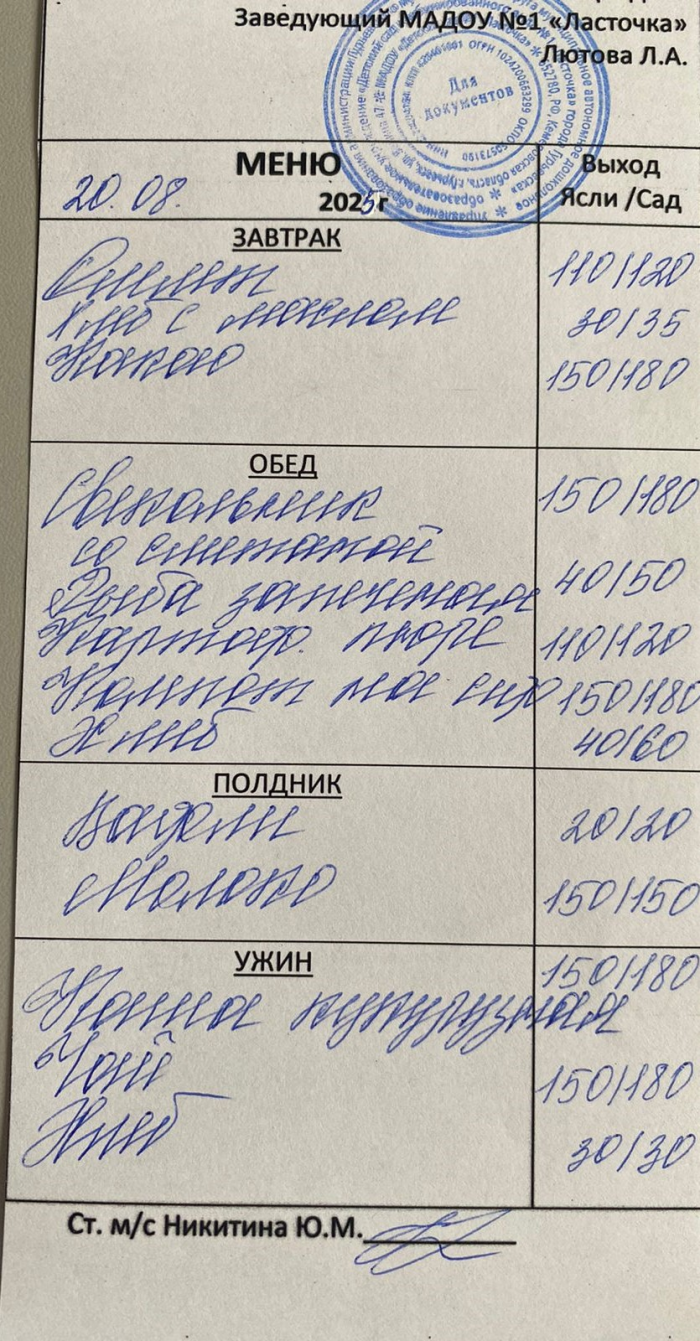 Заведующий МАДОУ №1 «Ласточка»
Лютова Л.А.
Для
документов
МЕНЮ
Выход
20.08.
2025 г
Ясли /Сад
ЗАВТРАК
Омлет 110/120
Хлеб с маслом 30/35
Какао 150/180
ОБЕД
Свекольник 150/180
со сметаной
Рыба запеченная 40/50
Картоф. пюре 110/120
Компот 150/180
Хлеб 40/60
ПОЛДНИК
Вафли 20/20
Молоко 150/150
УЖИН
Каша кукурузная 150/180
Чай 150/180
Хлеб 30/30
Ст. м/с Никитина Ю.М.